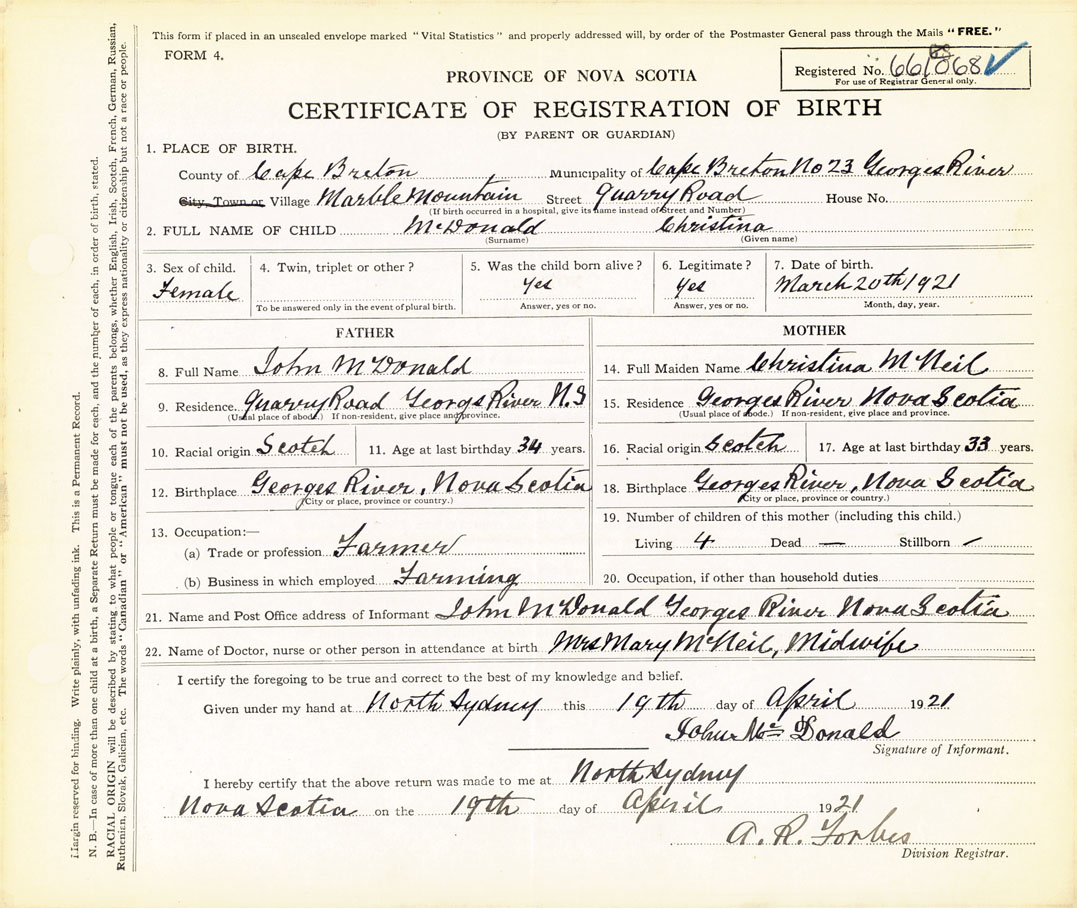 This form if placed in an unsealed envelope marked "Vital Statistics" and properly addressed will, by order of the Postmaster General pass through the Mails "FREE."
FORM 4.
Registered No. 661868
For use of Registrar General only.
PROVINCE OF NOVA SCOTIA
CERTIFICATE OF REGISTRATION OF BIRTH
(BY PARENT OR GUARDIAN)
1. PLACE OF BIRTH.
County of Cape Breton Municipality of Cape Breton No 23 Georges River
City, Town or Village Marble Mountain Street Quarry Road House No.
(If birth occurred in a hospital, give its name instead of Street and Number)
2. FULL NAME OF CHILD McDonald Christina
(Surname) (Given name)
3. Sex of child. 4. Twin, triplet or other? 5. Was the child born alive? 6. Legitimate? 7. Date of birth.
Female Yes Yes March 20th 1921
To be answered only in the event of plural birth. Answer, yes or no. Answer, yes or no. Month, day, year.
FATHER
8. Full Name John McDonald
9. Residence Quarry Road Georgs River N.S
(Usual place of abode.) If non-resident, give place and province.
10. Racial origin Scotch 11. Age at last birthday 34 years.
12. Birthplace Georges River, Nova Scotia
(City or place, province or country.)
13. Occupation:—
(a) Trade or profession Farmer
(b) Business in which employed Farming
MOTHER
14. Full Maiden Name Christina McNeil
15. Residence Georges River Nova Scotia
(Usual place of abode.) If non-resident, give place and province.
16. Racial origin Scotch 17. Age at last birthday 33 years.
18. Birthplace Georges River, Nova Scotia
(City or place, province or country.)
19. Number of children of this mother (including this child.)
Living 4 Dead — Stillborn –
20. Occupation, if other than household duties
21. Name and Post Office address of Informant John McDonald Georges River Nova Scotia
22. Name of Doctor, nurse or other person in attendance at birth Mrs Mary McNeil, Midwife
I certify the foregoing to be true and correct to the best of my knowledge and belief.
Given under my hand at North Sydney this 19th day of April 1921
John McDonald
Signature of Informant.
I hereby certify that the above return was made to me at North Sydney
Nova Scotia on the 19th day of April 1921
A. R. Forbes
Division Registrar.
Margin reserved for binding. Write plainly, with unfading ink. This is a Permanent Record.
N. B.—In case of more than one child at a birth, a Separate Return must be made for each, and the number of each, in order of birth, stated.
RACIAL ORIGIN will be described by stating to what people or tongue each of the parents belongs, whether English, Irish, Scotch, French, German, Russian,
Ruthenian, Slovak, Galician, etc. The words "Canadian" or "American" must not be used, as they express nationality or citizenship but not a race or people.